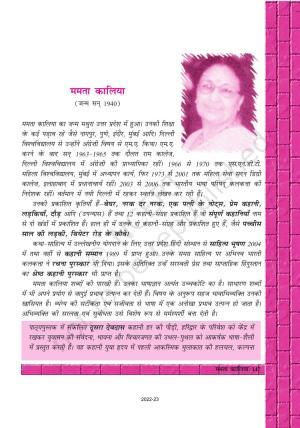 ममता कालिया
(जन्म सन् 1940)
ममता कालिया का जन्म मथुरा उत्तर प्रदेश में हुआ। उनकी शिक्षा
के कई पड़ाव रहे जैसे नागपुर, पुणे, इंदौर, मुंबई आदि। दिल्ली
विश्वविद्यालय से उन्होंने अंग्रेज़ी विषय से एम.ए. किया। एम.ए.
करने के बाद सन् 1963-1965 तक दौलत राम कालेज,
दिल्ली विश्वविद्यालय में अंग्रेज़ी की प्राध्यापिका रहीं। 1966 से 1970 तक एस.एन.डी.टी.
महिला विश्वविद्यालय, मुंबई में अध्यापन कार्य, फिर 1973 से 2001 तक महिला सेवा सदन डिग्री
कालेज, इलाहाबाद में प्रधानाचार्य रहीं। 2003 से 2006 तक भारतीय भाषा परिषद् कलकत्ता की
निदेशक रहीं। वर्तमान में नयी दिल्ली में रहकर स्वतंत्र लेखन कर रही हैं।
उनकी प्रकाशित कृतियाँ हैं-बेघर, नरक दर नरक, एक पत्नी के नोट्स, प्रेम कहानी,
लड़कियाँ, दौड़ आदि (उपन्यास) हैं तथा 12 कहानी-संग्रह प्रकाशित हैं जो संपूर्ण कहानियाँ नाम
से दो खंडों में प्रकाशित हैं। हाल ही में उनके दो कहानी-संग्रह और प्रकाशित हुए हैं, जैसे पच्चीस
साल की लड़की, थियेटर रोड के कौवे।
कथा-साहित्य में उल्लेखनीय योगदान के लिए उत्तर प्रदेश हिंदी संस्थान से साहित्य भूषण 2004
में तथा वहीं से कहानी सम्मान 1989 में प्राप्त हुआ। उनके समग्र साहित्य पर अभिनव भारती
कलकत्ता ने रचना पुरस्कार भी दिया। इसके अतिरिक्त उन्हें सरस्वती प्रेस तथा साप्ताहिक हिंदुस्तान
का श्रेष्ठ कहानी पुरस्कार भी प्राप्त है।
ममता कालिया शब्दों की पारखी हैं। उनका भाषाज्ञान अत्यंत उच्चकोटि का है। साधारण शब्दों
में भी अपने प्रयोग से जादुई प्रभाव उत्पन्न कर देती हैं। विषय के अनुरूप सहज भावाभिव्यक्ति उनकी
खासियत है। व्यंग्य की सटीकता एवं सजीवता से भाषा में एक अनोखा प्रभाव उत्पन्न हो जाता है।
अभिव्यक्ति की सरलता एवं सुबोधता उसे विशेष रूप से मर्मस्पर्शी बना देती है।
पाठ्यपुस्तक में संकलित दूसरा देवदास कहानी हर की पौड़ी, हरिद्वार के परिवेश को केंद्र में
रखकर युवामन की संवेदना, भावना और विचारजगत की उथल-पुथल को आकर्षक भाषा-शैली
में प्रस्तुत करती है। यह कहानी युवा हृदय में पहली आकस्मिक मुलाकात की हलचल, कल्पना
ममता कालिया/147
2022-23